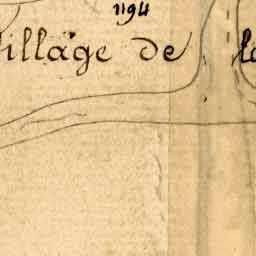 1194
illage de la